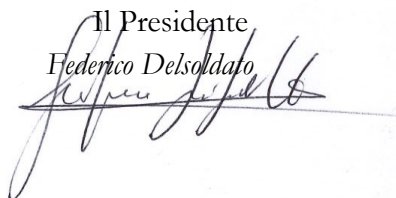 Il Presidente
Federico Delsoldato